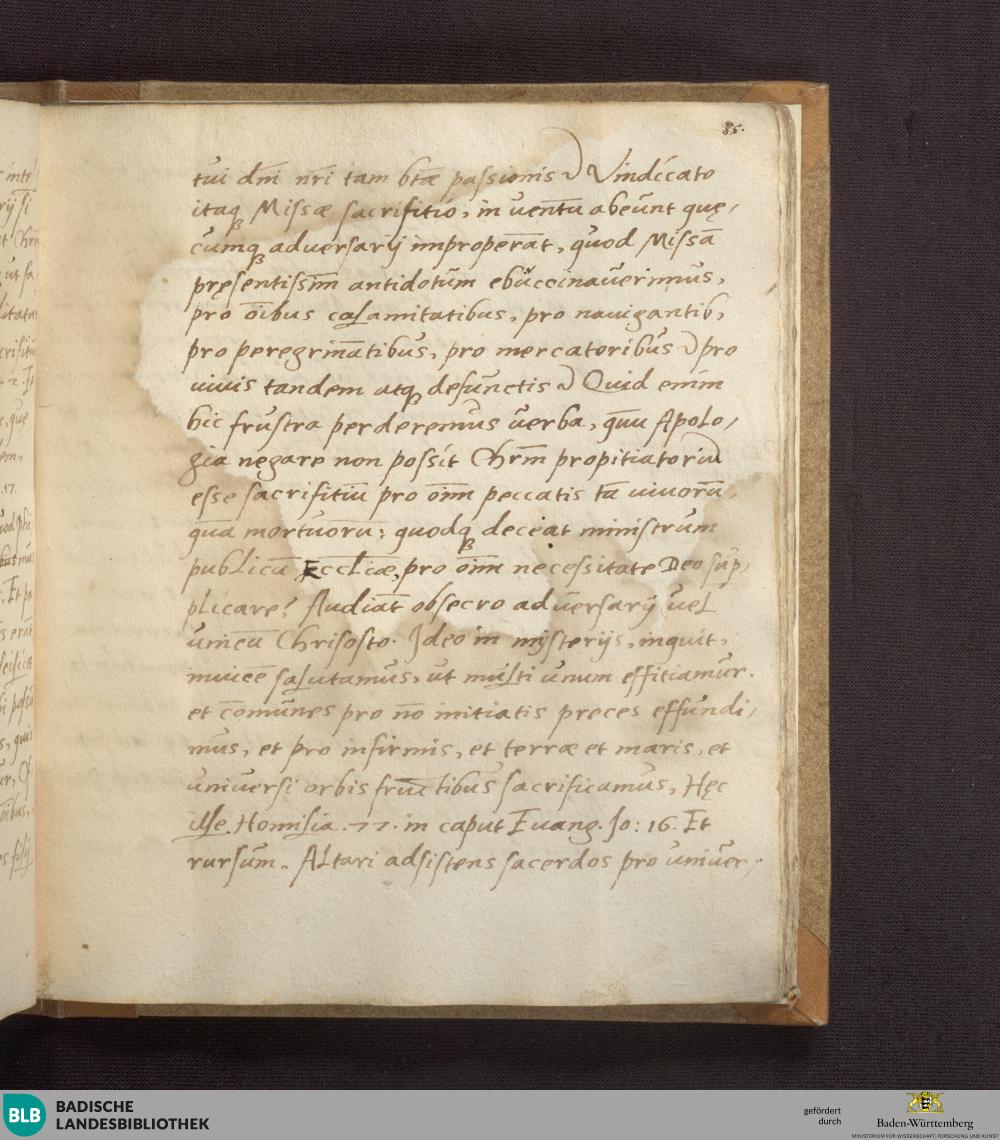 85.
tui dn̄i nr̄i tam btǣ passionis ⁊c Vindicato
itaq̃ Missæ sacrifitio, in uentū abeunt quę,
cumq̃ aduersarij improperāt, quod Missā
pręsentissim̄ antidotum ebuccinauerimus,
pro ōibus calamitatibus, pro nauigantib,
pro peregrināntibus, pro mercatoribus ⁊c pro
uiuis tandem atq̃ defunctis ⁊c Quid enim
hic frustra perderemus uerba, quū Apolo,
gia negare non possit Chrm̄ propitiatoriū
esse sacrifitiū pro oīm peccatis tā uiuorū,
quā mortuorū: quodq̃ deceat ministrum
publicū Eccliǣ, pro oīm necessitate Deo sup,
plicare? Audiāt obsecro aduersarij uel
unicū Chrisosto. Ideo in mysterijs, inquit,
inuicē salutamus, ut multi unum efficiamur.
et cōmunes pro nō initiatis preces effundi,
mus, et pro infirmis, et terræ et maris, et
uniuersi orbis fructibus sacrificamus, Hęc
ille. Homilia. 77. in caput Euang. Jo: 16. Et
rursum. Altari adsistens sacerdos pro uniuer,
BLB
BADISCHE
LANDESBIBLIOTHEK
gefördert
durch
Baden-Württemberg
MINISTERIUM FÜR WISSENSCHAFT, FORSCHUNG UND KUNST